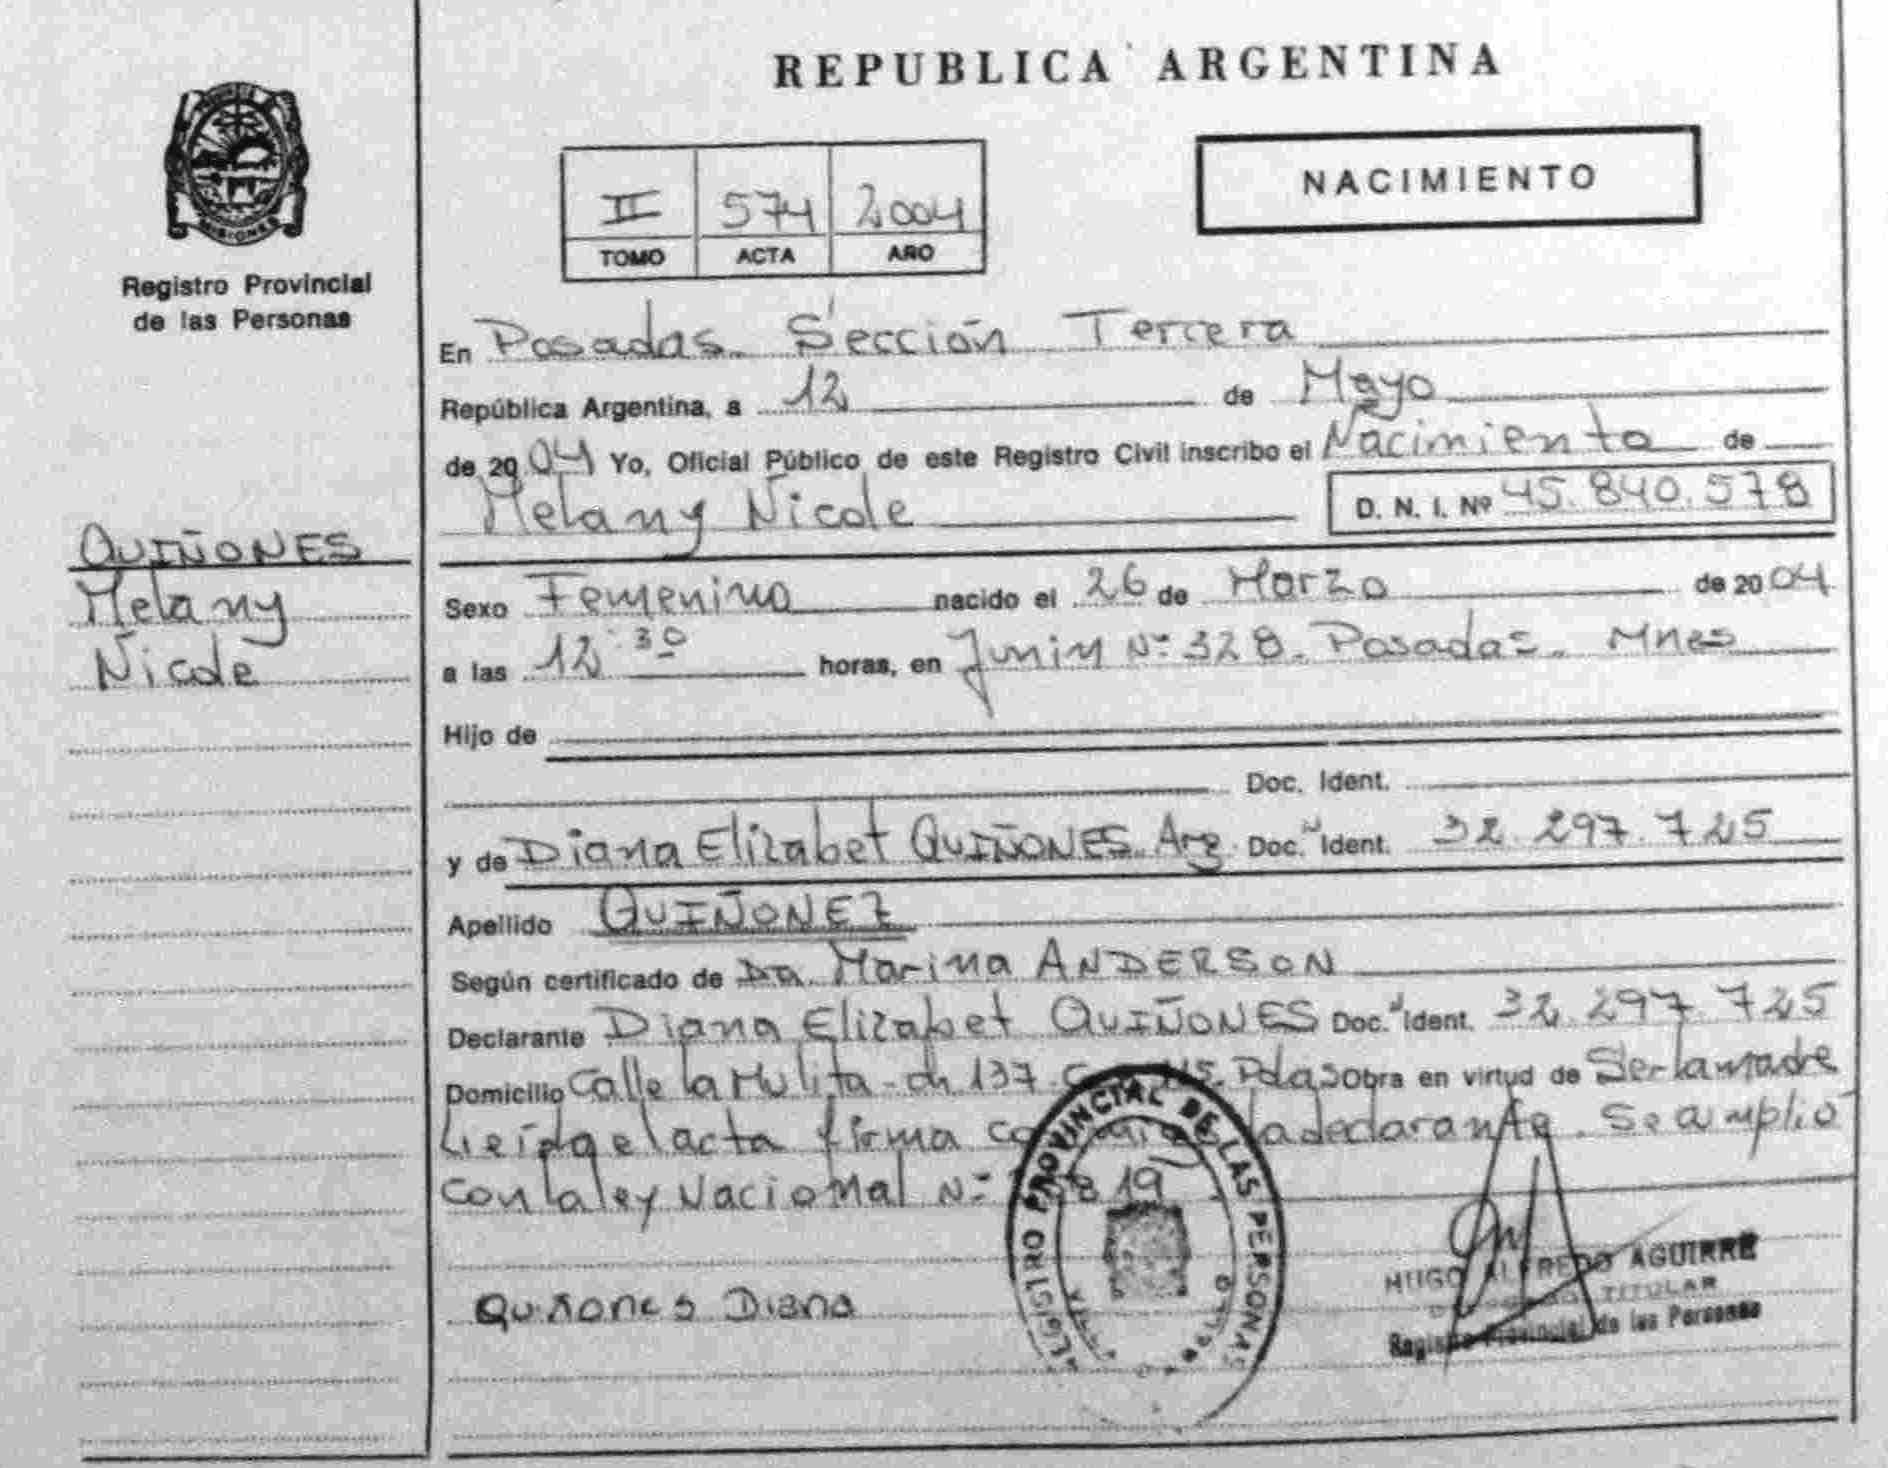 REPUBLICA ARGENTINA
MISIONES
Registro Provincial
de las Personas
II 574 2004
TOMO ACTA AÑO
NACIMIENTO
En Posadas. Sección Tercera
República Argentina, a 12 de Mayo
de 2004 Yo, Oficial Público de este Registro Civil inscribo el Nacimiento de
Melany Nicole D. N. I. Nº 45.840.578
QUIÑONES
Melany
Nicole
Sexo Femenino nacido el 26 de Marzo de 2004
a las 12:30 horas, en Junin Nº 328. Posadas. Mnes
Hijo de
Doc. Ident.
y de Diana Elizabet QUIÑONES. Arg. Doc. Ident. 32.297.725
Apellido QUIÑONEZ
Según certificado de Da. Marina ANDERSON
Declarante Diana Elizabet QUIÑONES Doc. Ident. 32.297.725
Domicilio Calle la Mulita - ch 137. Pdas Obra en virtud de Ser la madre
Leída el acta firma la declarante. Se amplió
con la ley Nacional Nº
Quiñones Diana
REGISTRO PROVINCIAL DE LAS PERSONAS
HUGO ALFREDO AGUIRRE
TITULAR
Registro Provincial de las Personas